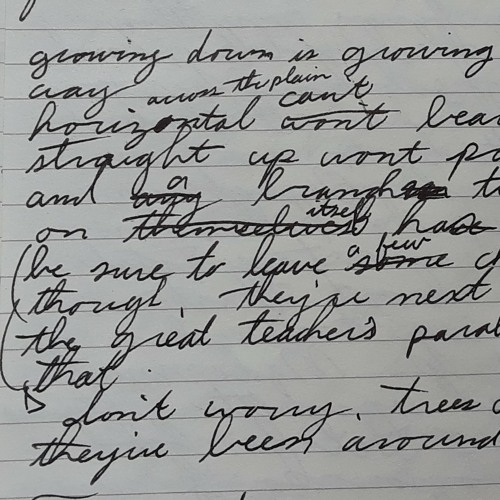 growing down is growing
way across the plain
horizontal won't can't bear
straight up wont
and a branch
on themselves itself has
(be sure to leave some a few
though, they're next
the great teacher's
that
don't worry, trees
they've been around